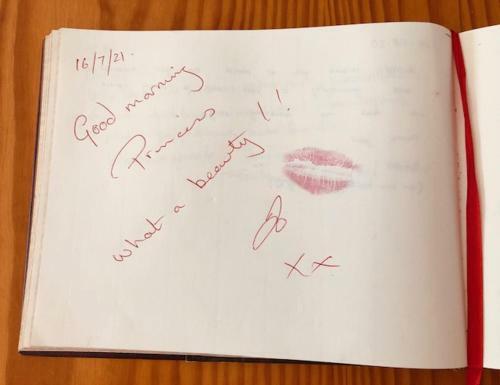 16/7/21.
Good morning
Princess
what a beauty !!
Jo
xx